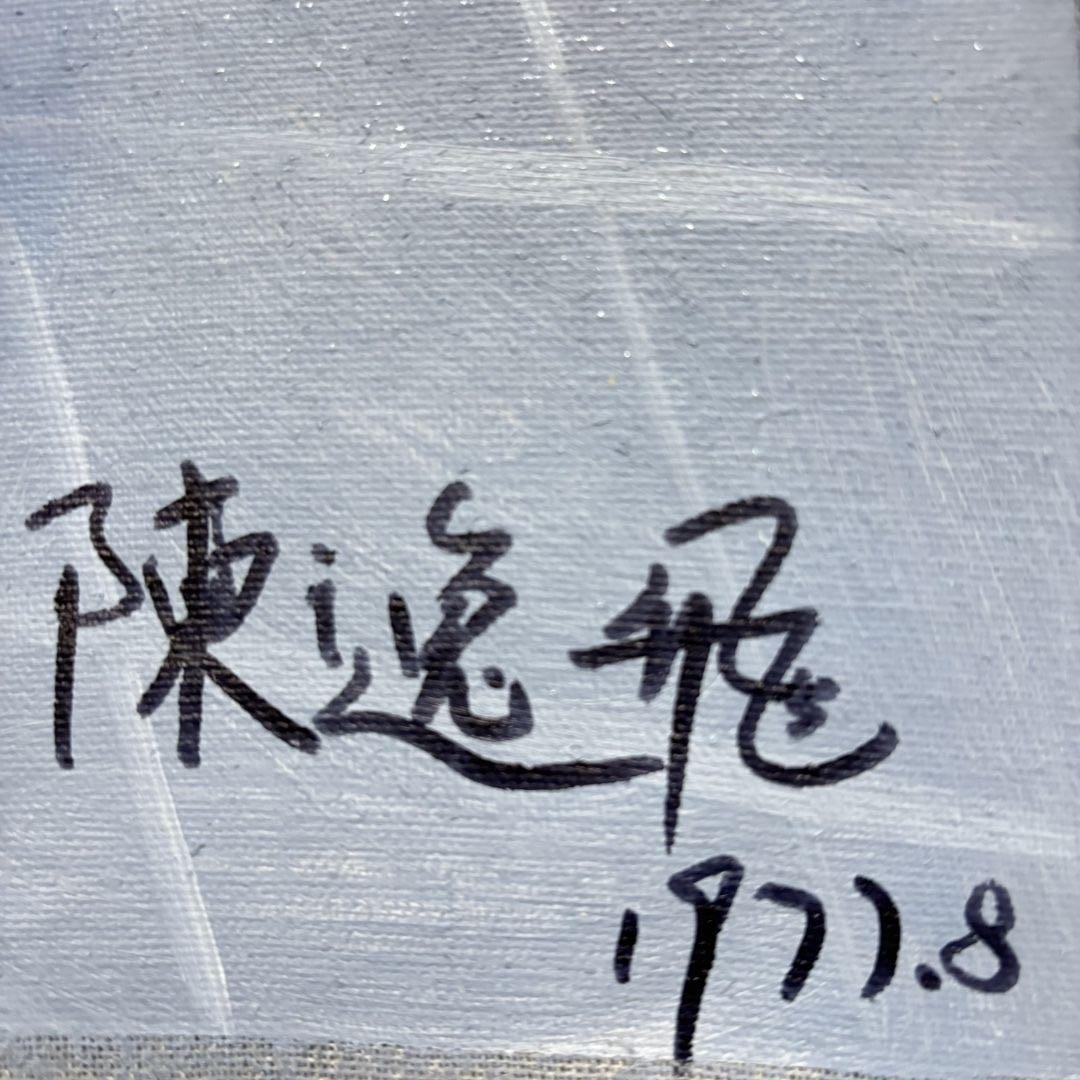 陳逸飛
1977.8